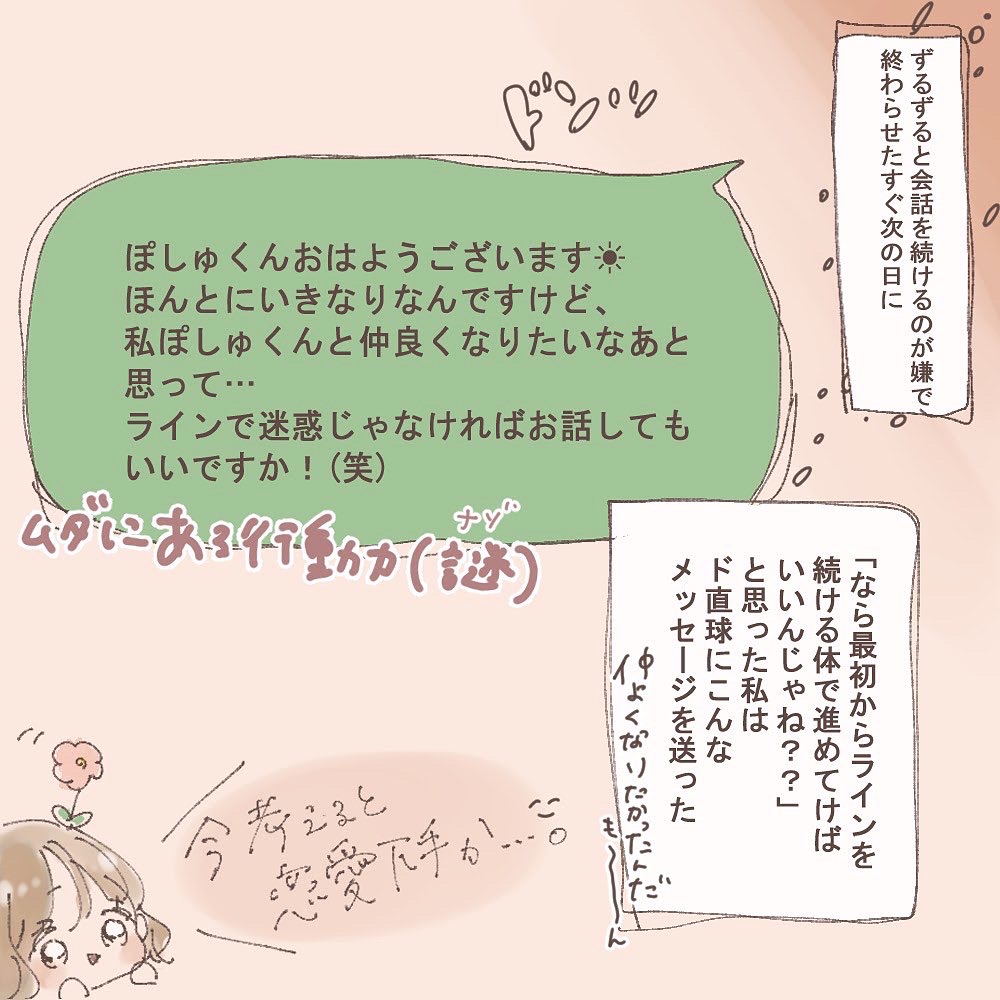 ずるずると会話を続けるのが嫌で
終わらせたすぐ次の日に
ドン
ぽしゅくんおはようございます☀
ほんとにいきなりなんですけど、
私ぽしゅくんと仲良くなりたいなあと
思って…
ラインで迷惑じゃなければお話しても
いいですか！(笑)
ムダにある行動力(謎)
ナゾ
「なら最初からラインを
続ける体で進めてけば
いいんじゃね？？」
と思った私は
ド直球にこんな
メッセージを送った
仲よくなりたかったんだ
も〜〜ん
今考えると
恋愛下手か…。